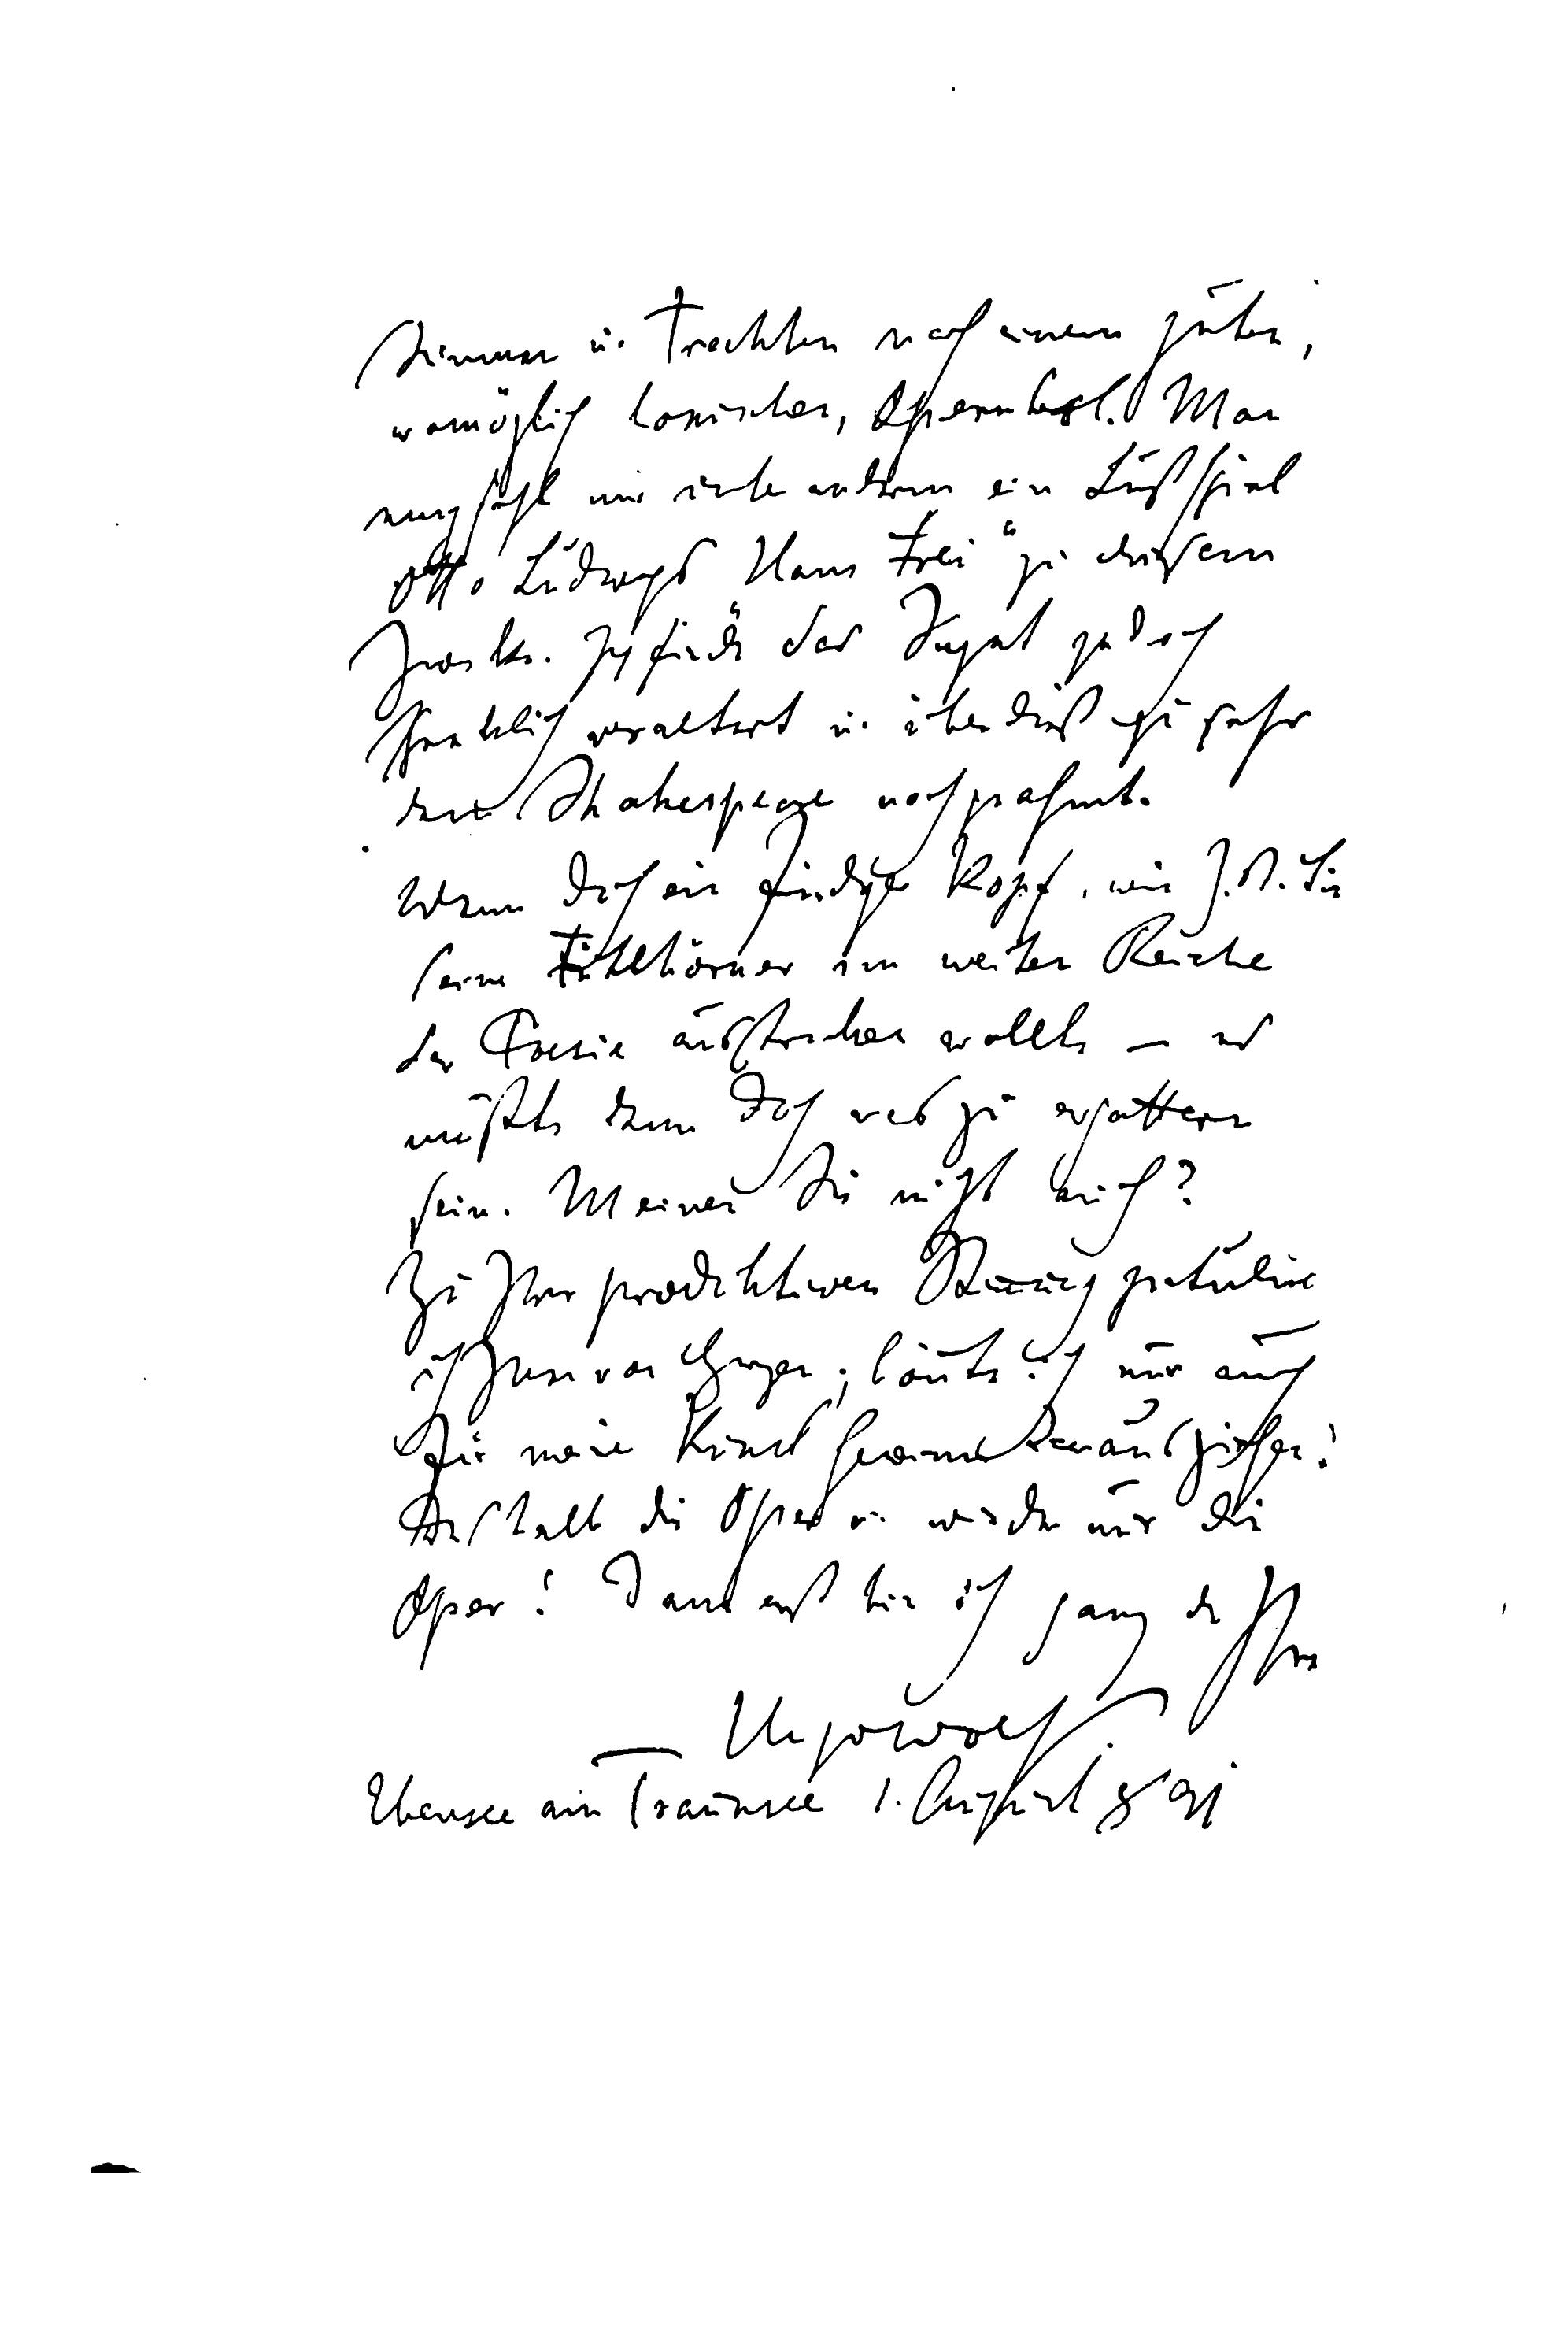 Sinnen u. Trachten nach einem guten,
womöglich komischen, Operntext. Man
empfahl mir unter anderm ein Lustspiel
Otto Ludwigs Hans Frei" zu diesem
Zwecke. Ich finde das Sujet jedoch
ziemlich veraltert u. überdieß zu sehr
dem Shakespeare nachgeahmt.
Wenn doch ein findiger Kopf, wie z.B. Sie
seine Fühlhörner im weiten Reiche
der Poesie ausstrecken wollte – es
müßte denn doch was zu ergattern
sein. Meinen Sie nicht auch?
Zu Ihrer produktiven Stimmung gratulire
ich Ihnen von Herzen; könnte ich nur auch
für meine Kunst Gewinn daraus ziehen!
Deshalb die Oper u. wieder nur die
Oper! Dann erst bin ich ganz der Ihre
Hugo Wolf
Ebensee am Traunsee 1. August 891